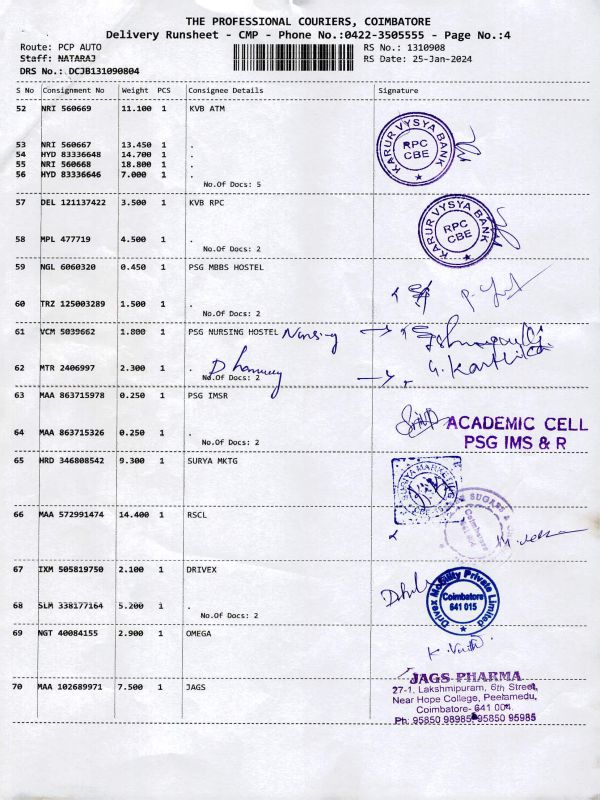 THE PROFESSIONAL COURIERS, COIMBATORE
Delivery Runsheet - CMP - Phone No.:0422-3505555 - Page No.:4
Route: PCP AUTO RS No.: 1310908
Staff: NATARAJ RS Date: 25-Jan-2024
DRS No.: DCJB131090804
S No Consignment No Weight PCS Consignee Details Signature
52 NRI 560669 11.100 1 KVB ATM
53 NRI 560667 13.450 1 .
54 HYD 83336648 14.700 1 .
55 NRI 560668 18.800 1 .
56 HYD 83336646 7.000 1 .
No.Of Docs: 5
KARUR VYSYA BANK
RPC
CBE
57 DEL 121137422 3.500 1 KVB RPC
58 MPL 477719 4.500 1 .
No.Of Docs: 2
KARUR VYSYA BANK
RPC
CBE
59 NGL 6060320 0.450 1 PSG MBBS HOSTEL
60 TRZ 125003289 1.500 1 .
No.Of Docs: 2
61 VCM 5039662 1.800 1 PSG NURSING HOSTEL Nursing
62 MTR 2406997 2.300 1 . G. Karthika
No.Of Docs: 2
63 MAA 863715978 0.250 1 PSG IMSR
64 MAA 863715326 0.250 1 .
No.Of Docs: 2
ACADEMIC CELL
PSG IMS & R
65 HRD 346808542 9.300 1 SURYA MKTG
SURYA MARKETING
66 MAA 572991474 14.400 1 RSCL
SUGARS &
Coimbatore
67 IXM 505819750 2.100 1 DRIVEX
68 SLM 338177164 5.200 1 .
No.Of Docs: 2
Drivex Mobility Private Limited
Coimbatore
641 015
69 NGT 40084155 2.900 1 OMEGA
70 MAA 102689971 7.500 1 JAGS
JAGS PHARMA
27-1, Lakshmipuram, 6th Street,
Near Hope College, Peelamedu,
Coimbatore- 641 004.
Ph: 95850 98985, 95850 95985